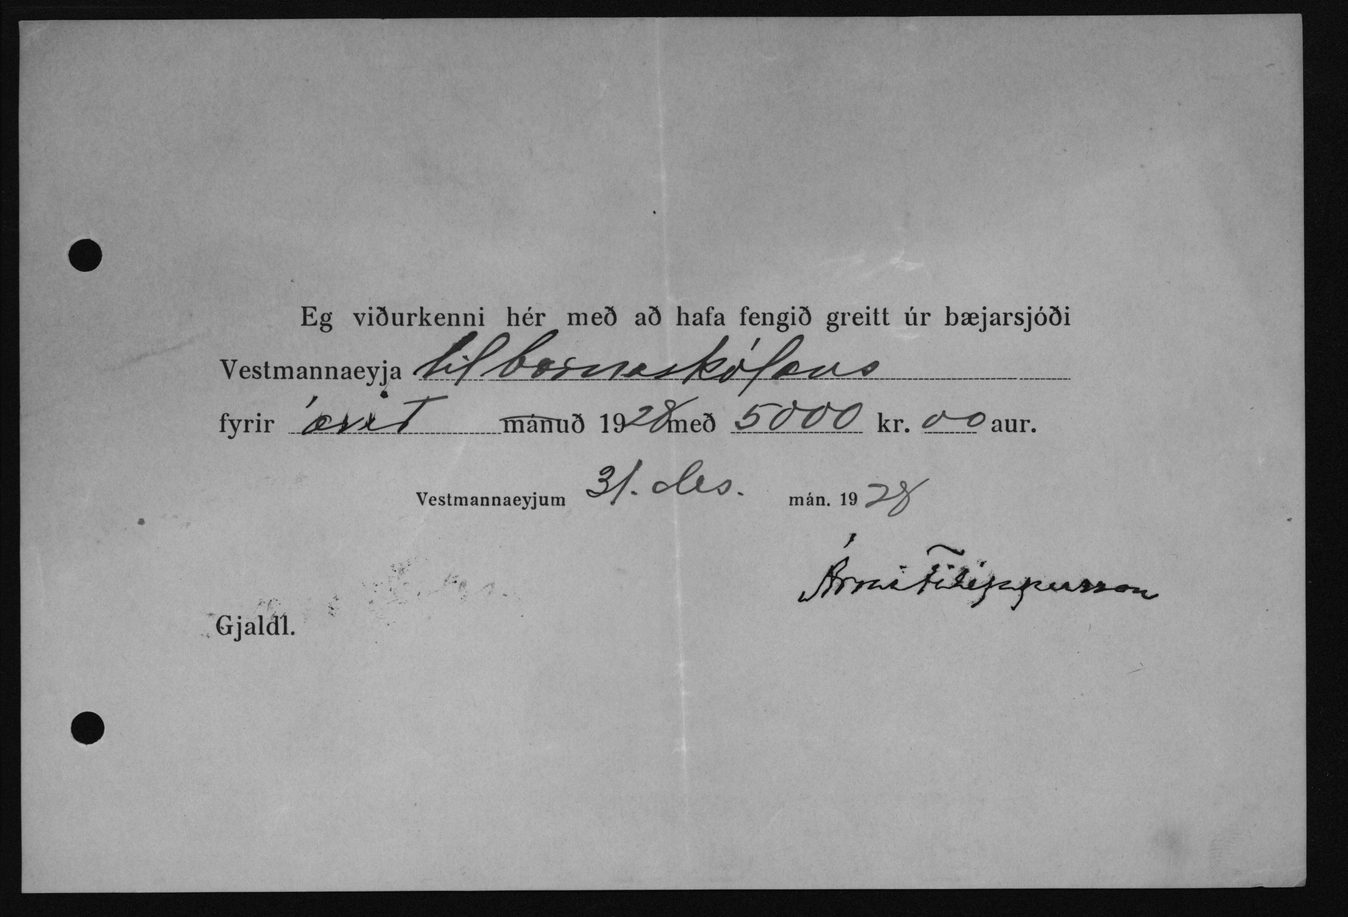 Eg viðurkenni hér með að hafa fengið greitt úr bæjarsjóði
Vestmannaeyja til barnaskólans
fyrir árið mánuð 1928 með 5000 kr. 00 aur.
Vestmannaeyjum 31. des. mán. 1928
Árni Filippusson
Gjaldl.